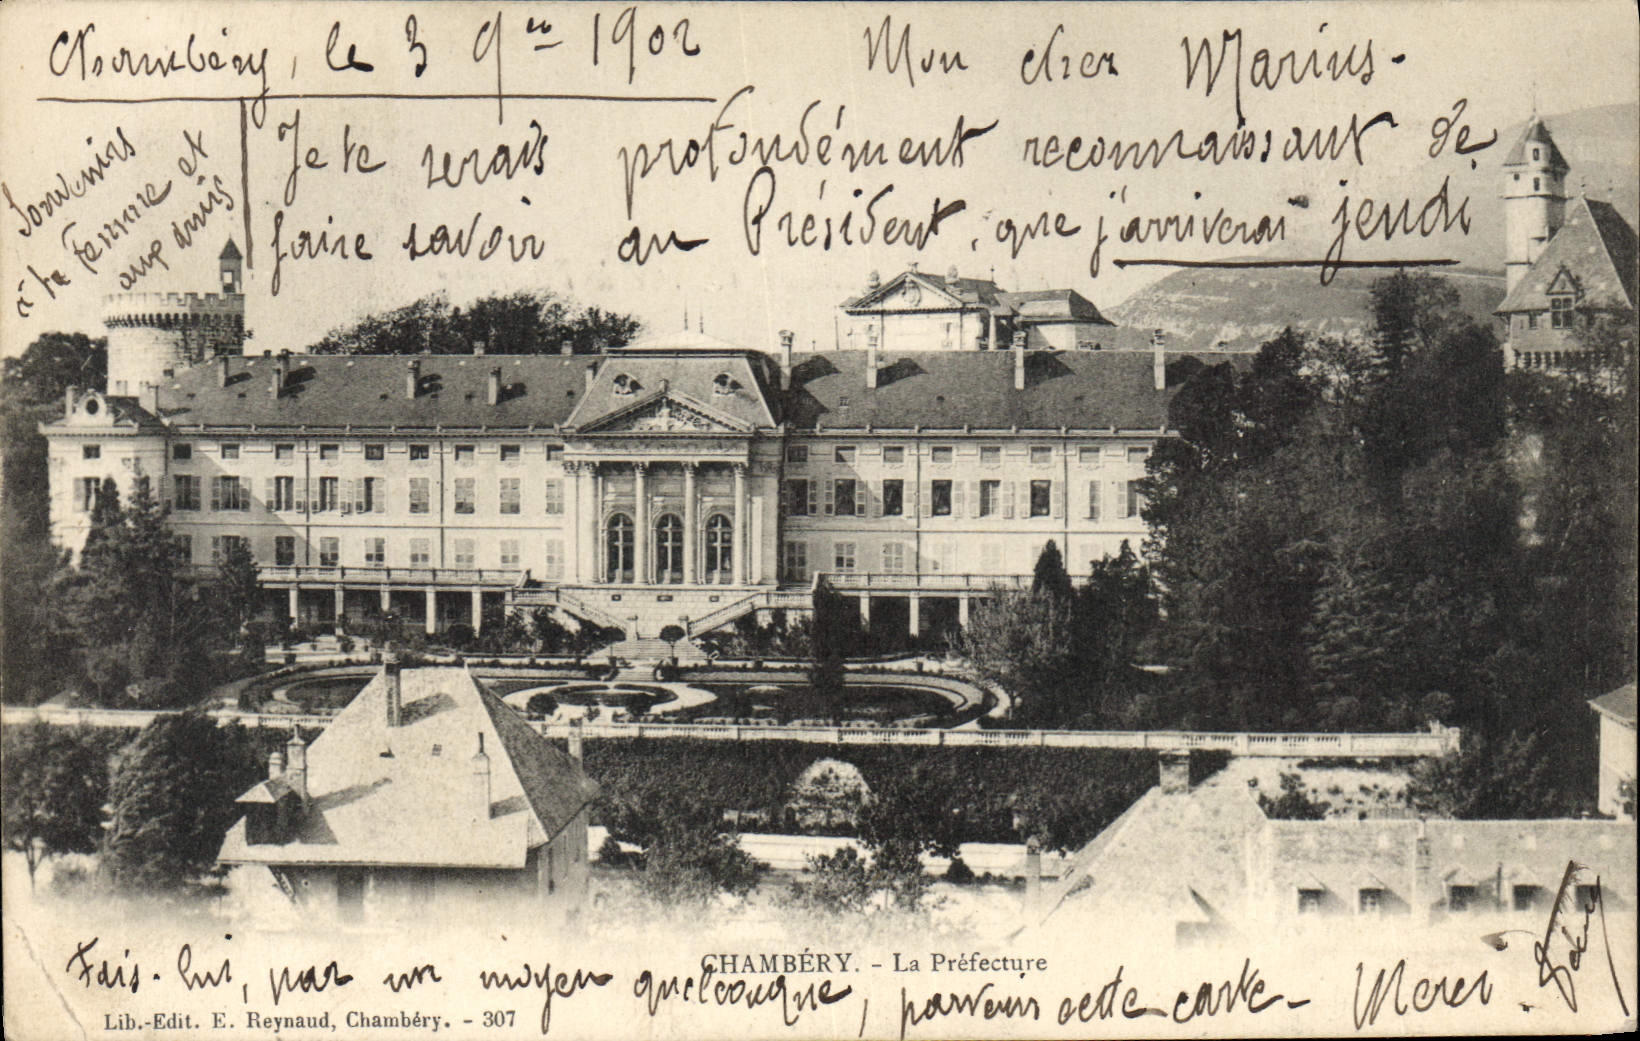 Chambéry, le 3 9bre 1902
Mon cher Marius.
Je te serais profondément reconnaissant de
faire savoir au Président, que j'arriverai jeudi
Souvenirs
à ta femme et
aux amis
Fais-lui, par un moyen quelconque, parvenir cette carte - Merci.
CHAMBÉRY. - La Préfecture
Lib.-Edit. E. Reynaud, Chambéry. - 307